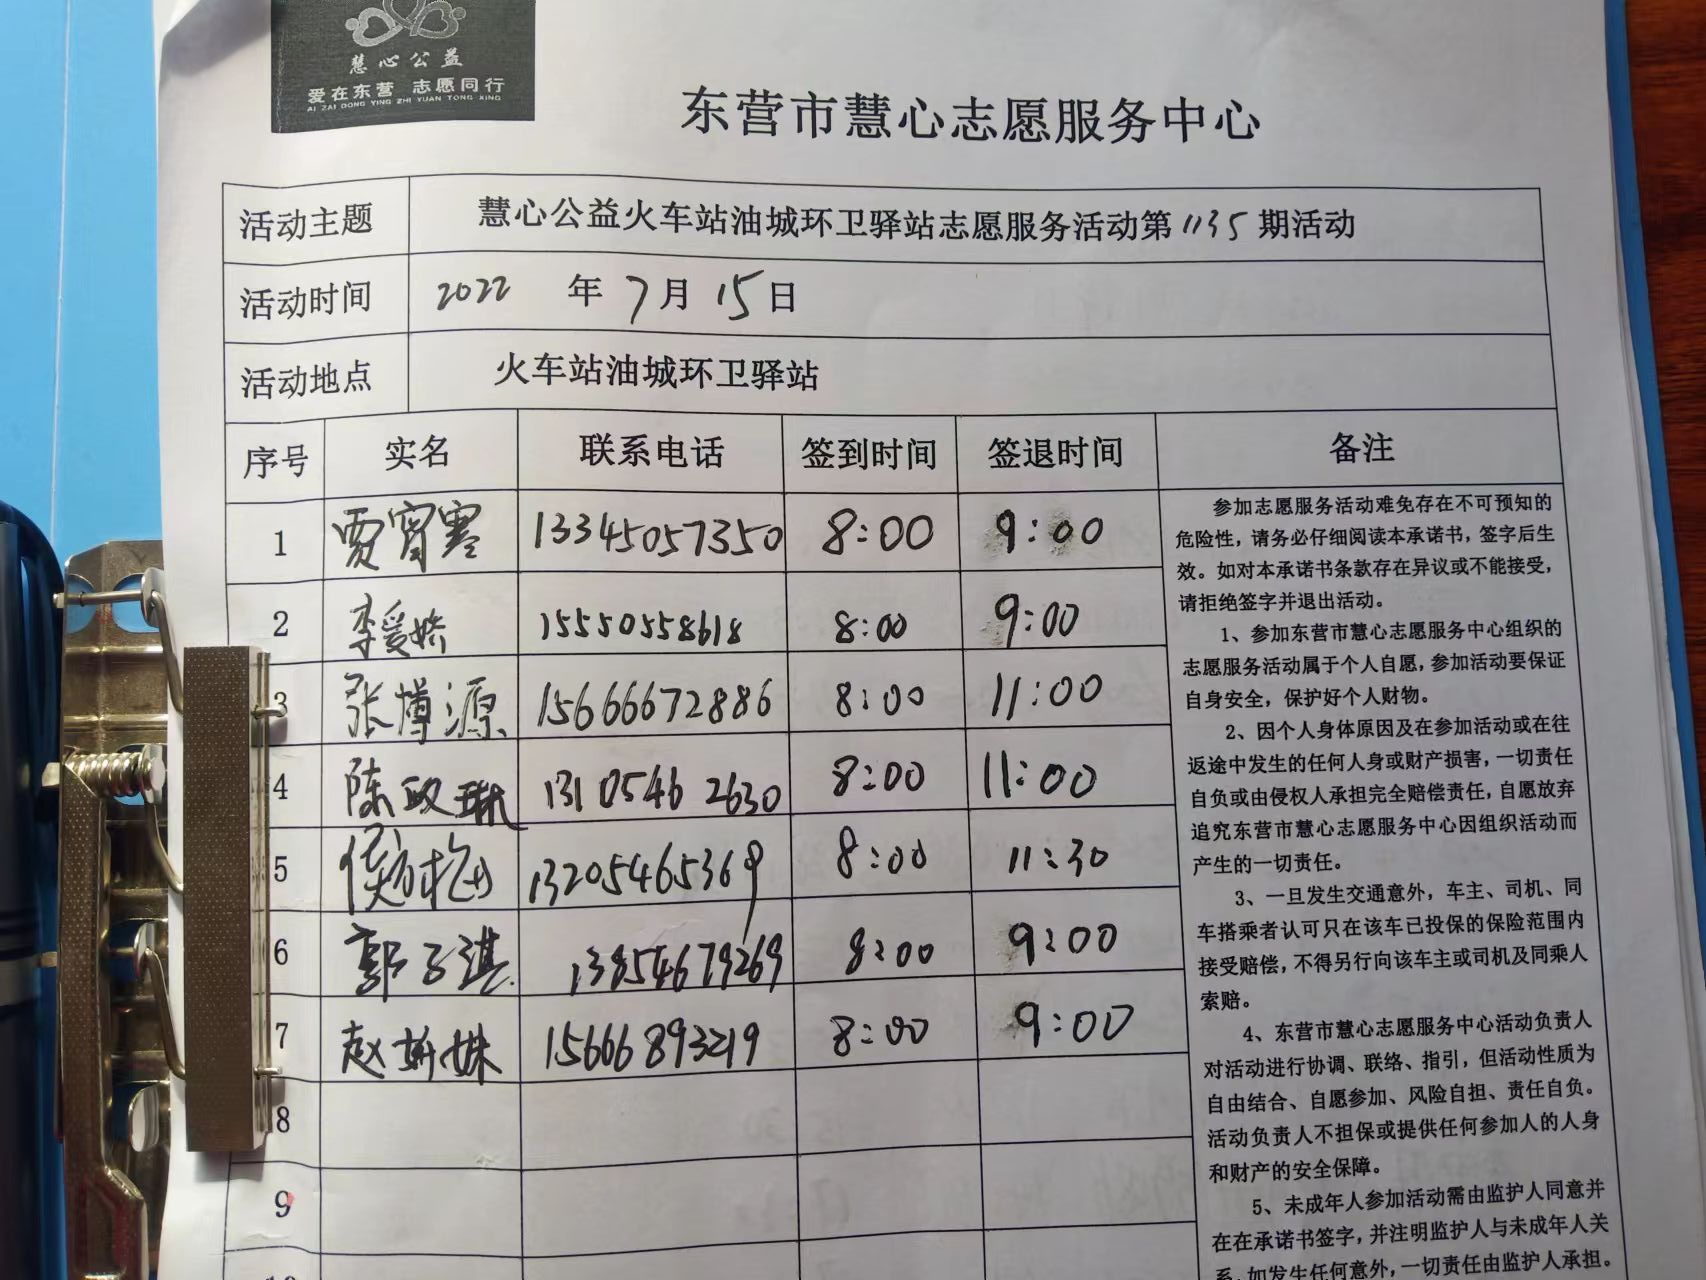 慧心公益
爱在东营 志愿同行
AI ZAI DONG YING ZHI YUAN TONG XING
东营市慧心志愿服务中心
活动主题 慧心公益火车站油城环卫驿站志愿服务活动第1135期活动
活动时间 2022 年 7月 15日
活动地点 火车站油城环卫驿站
序号 实名 联系电话 签到时间 签退时间 备注
1 贾宵寒 13345057350 8:00 9:00
2 李爱娇 15550558618 8:00 9:00
3 张博源 15666672886 8:00 11:00
4 陈玫琳 13105462630 8:00 11:00
5 侯梅 13205465369 8:00 11:30
6 郭子淇 13854679269 8:00 9:00
7 赵姝 15666893219 8:00 9:00
8
9
10
参加志愿服务活动难免存在不可预知的
危险性，请务必仔细阅读本承诺书，签字后生
效。如对本承诺书条款存在异议或不能接受，
请拒绝签字并退出活动。
1、参加东营市慧心志愿服务中心组织的
志愿服务活动属于个人自愿，参加活动要保证
自身安全，保护好个人财物。
2、因个人身体原因及在参加活动或在往
返途中发生的任何人身或财产损害，一切责任
自负或由侵权人承担完全赔偿责任，自愿放弃
追究东营市慧心志愿服务中心因组织活动而
产生的一切责任。
3、一旦发生交通意外，车主、司机、同
车搭乘者认可只在该车已投保的保险范围内
接受赔偿，不得另行向该车主或司机及同乘人
索赔。
4、东营市慧心志愿服务中心活动负责人
对活动进行协调、联络、指引，但活动性质为
自由结合、自愿参加、风险自担、责任自负。
活动负责人不担保或提供任何参加人的人身
和财产的安全保障。
5、未成年人参加活动需由监护人同意并
在在承诺书签字，并注明监护人与未成年人关
系，如发生任何意外，一切责任由监护人承担。